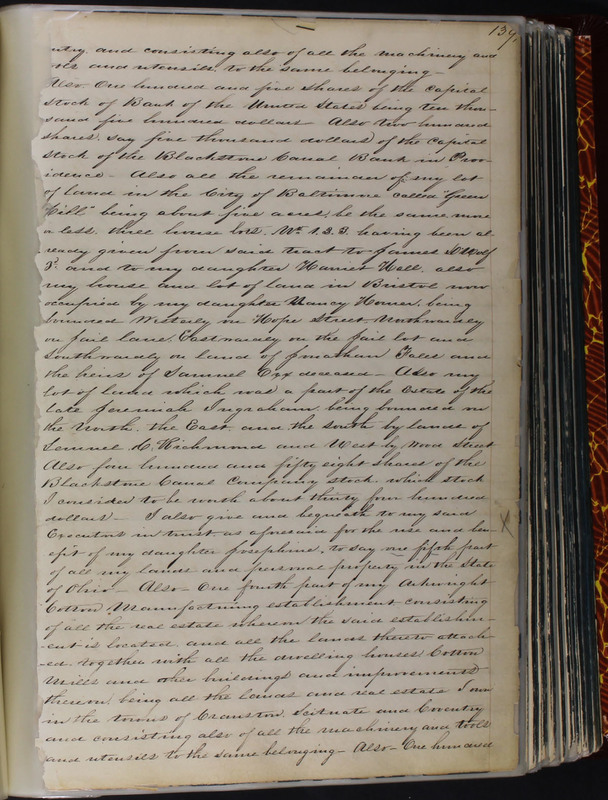 139.
ntry, and consisting also of all the machinery and
ols and utensils, to the same belonging—
Also One hundred and five shares of the capital
stock of Bank of the United States being ten thou-
sand five hundred dollars Also two hundred
shares, say five thousand dollars, of the capital
stock of the Blackstone Canal Bank in Prov-
idence— Also all the remainder of my lot
of land in the City of Baltimore called "Green
Hill" being about five acres, be the same more
or less, three house lots, No. 1.2.3. having been al-
ready given from said tract to James DWolf
3d. and to my daughter Harriet Hall. also
my house and lot of land in Bristol now
occupied by my daughter Nancy Homer, being
bounded Westerly on Hope Street Northwardly
on jail lane, Eastwardly on the jail lot and
Southwardly on land of Jonathan Fales and
the heirs of Samuel Coxx deceased— Also my
lot of land which was a part of the Estate of the
late Jeremiah Ingraham, being bounded on
the North, the East, and the South by lands of
Lemuel C. Richmond and West by Wood Street
Also four hundred and fifty eight shares of the
Blackstone Canal Company stock, which stock
I consider to be worth about thirty four hundred
dollars— I also give and bequeath to my said
Executors in trust, as aforesaid for the use and ben-
efit of my daughter Josephine, to say one fifth part
of all my lands and personal property in the State
of Ohio— Also— One fourth part of my Arkwright
Cotton Manufacturing establishment consisting
of all the real estate whereon the said establishm-
ent is located, and all the lands thereto attach-
ed, together with all the dwelling houses, Cotton
Mills and other buildings and improvements
thereon, being all the lands and real estate I own
in the towns of Cranston, Scituate and Coventry
and consisting also of all the machinery and tools
and utensils to the same belonging— Also— One hundred